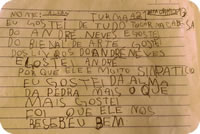 NOME: TURMA
EU GOSTEI DE TUDO
DO ANDRE NEVES E GOSTEI
DO DE ARTE GOSTEI
DOS LIVROS DO ANDRE NEVES
E GOSTEI ANDRE
POR QUE ELE MUITO SINPATICO
EU GOSTEI DA ALMA
DA PEDRA MAIS O QUE
MAIS GOSTEI
FOI QUE ELE NOS
RESEBEU BEM